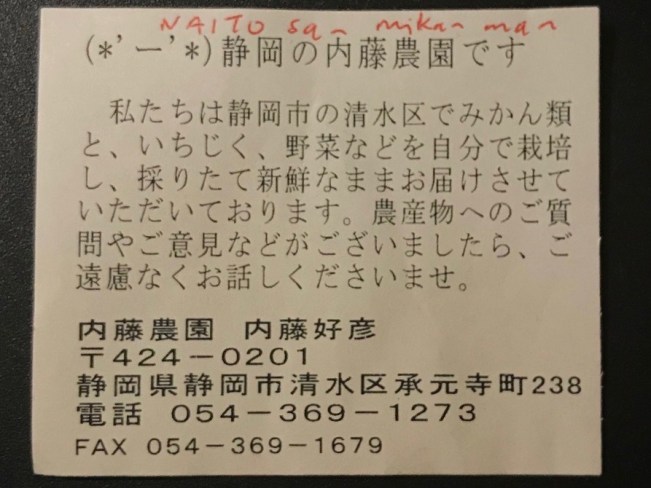 NAITO san mikan man
(*'ー'*)静岡の内藤農園です
私たちは静岡市の清水区でみかん類
と、いちじく、野菜などを自分で栽培
し、採りたて新鮮なままお届けさせて
いただいております。農産物へのご質
問やご意見などがございましたら、ご
遠慮なくお話しくださいませ。
内藤農園　内藤好彦
〒424－0201
静岡県静岡市清水区承元寺町238
電話　054－369－1273
FAX 054－369－1679